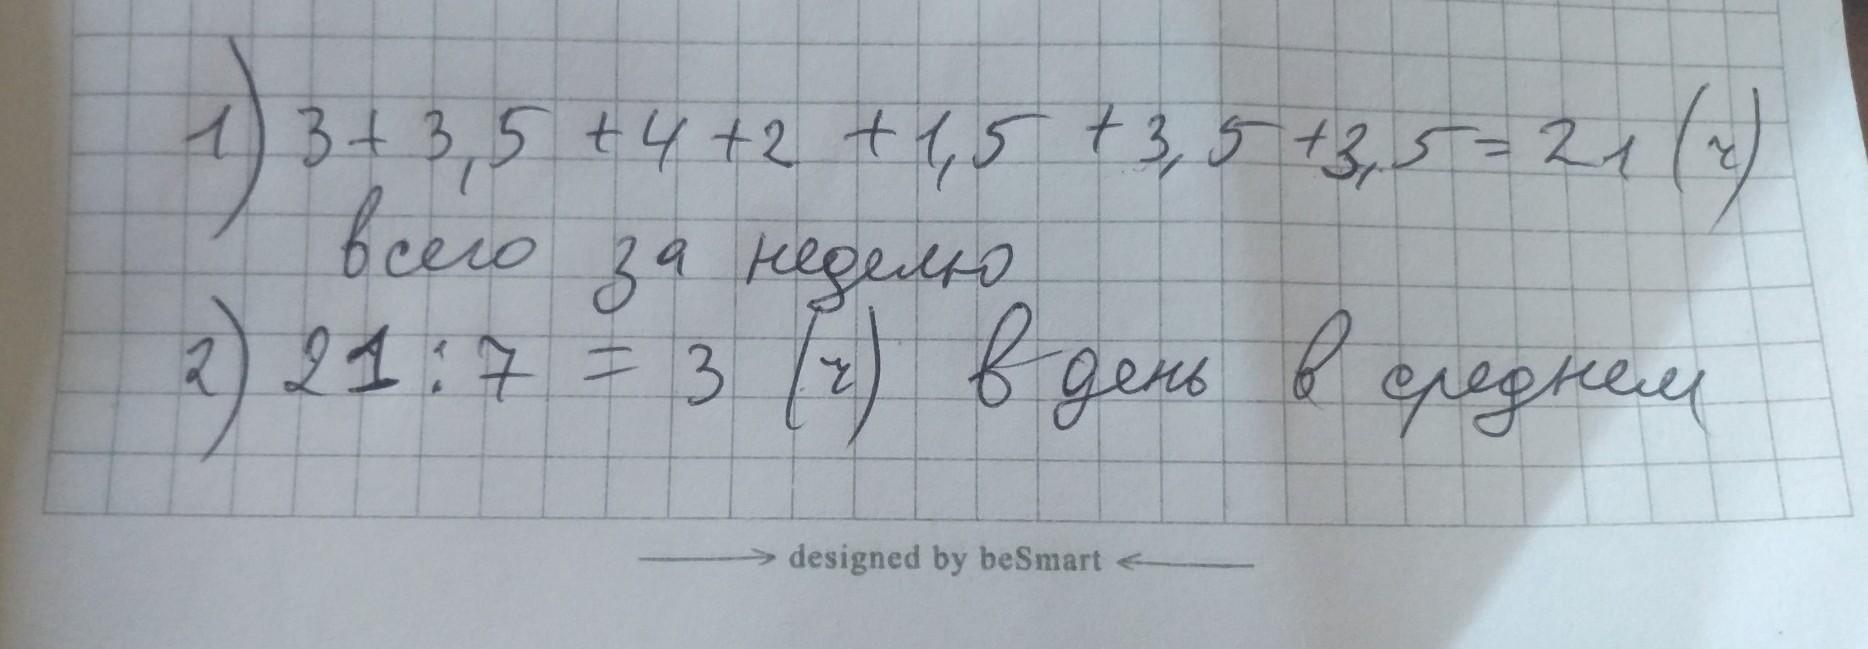 1) 3 + 3,5 + 4 + 2 + 1,5 + 3,5 + 3,5 = 21 (ч)
всего за неделю
2) 21 : 7 = 3 (ч) в день в среднем
designed by beSmart